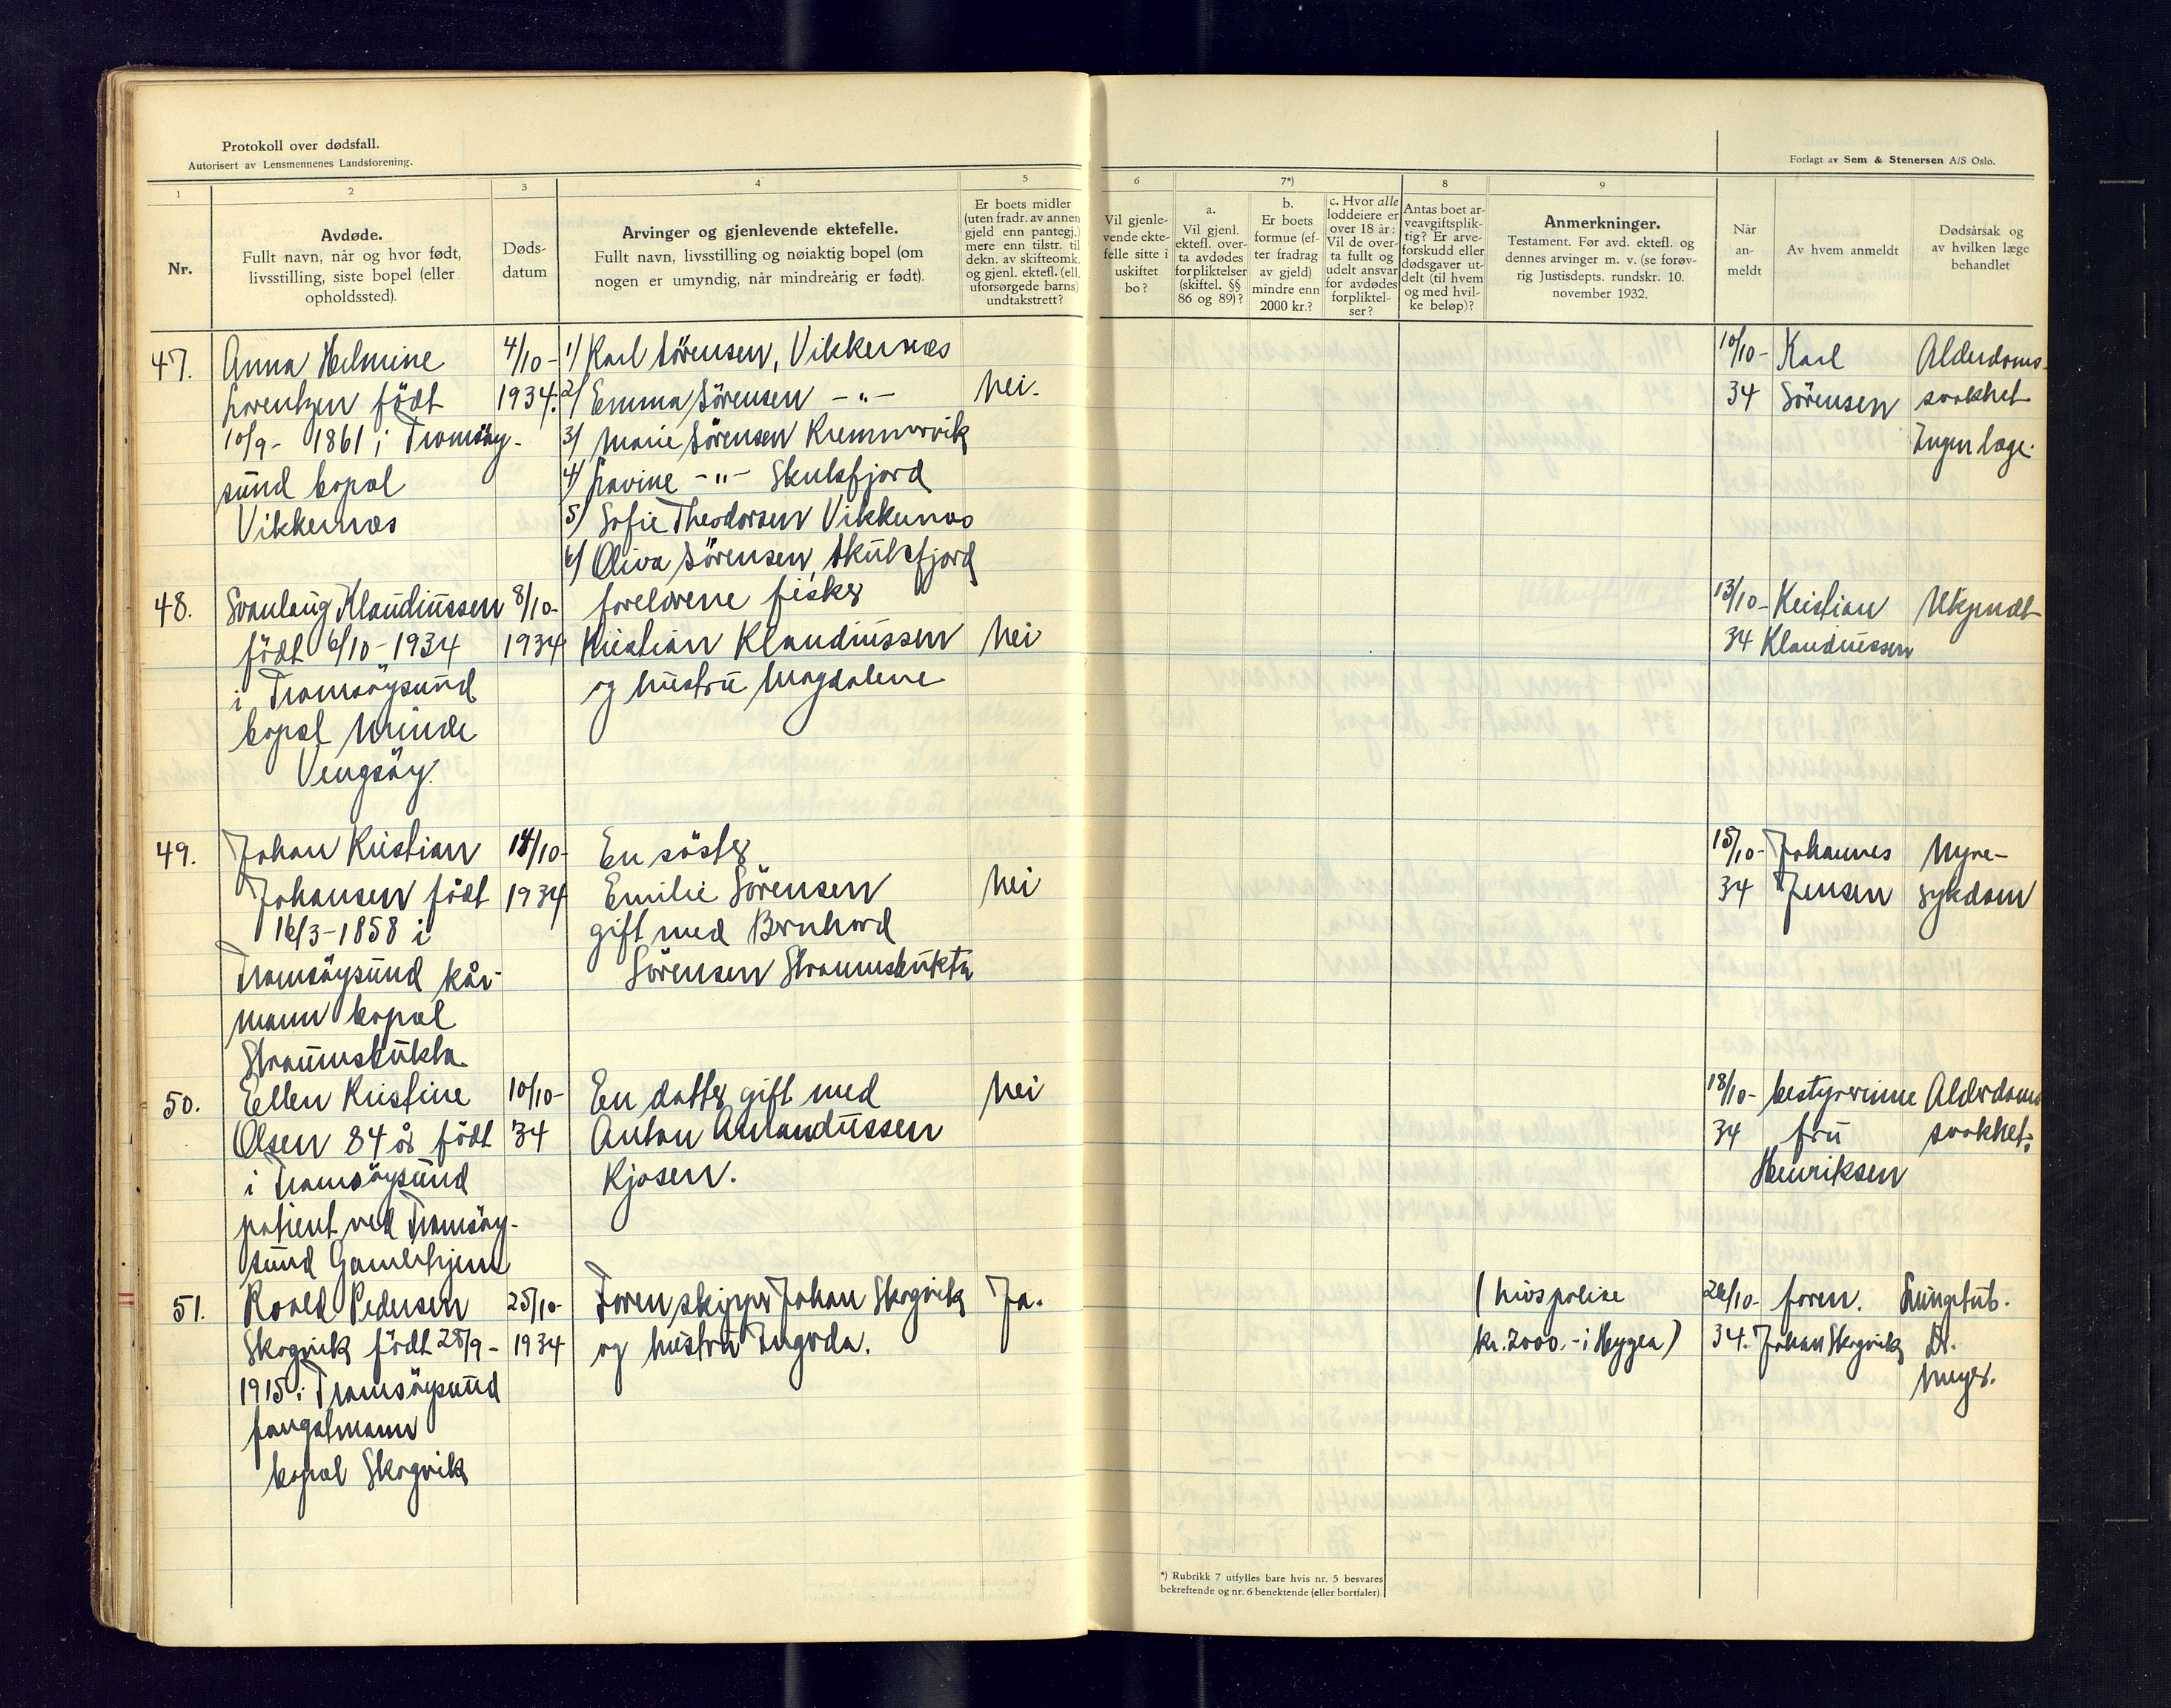 Protokoll over dødsfall.
Autorisert av Lensmennenes Landsforening.
Forlagt av Sem & Stenersen A/S Oslo.
1
2
3
4
5
6
7*)
8
9
Nr.
Avdøde.
Fullt navn, når og hvor født,
livsstilling, siste bopel (eller
opholdssted).
Døds-
datum
Arvinger og gjenlevende ektefelle.
Fullt navn, livsstilling og nøiaktig bopel (om
nogen er umyndig, når mindreårig er født).
Er boets midler
(uten fradr. av annen
gjeld enn pantegj.)
mere enn tilstr. til
dekn. av skifteomk.
og gjenl. ektef. (ell.
uforsørgede barns)
undtakstrett?
Vil gjenle-
vende ekte-
felle sitte i
uskiftet
bo?
a.
Vil gjenl.
ektefl. over-
ta avdødes
forpliktelser
(skiftel. §§
86 og 89)?
b.
Er boets
formue (ef-
ter fradrag
av gjeld)
mindre enn
2000 kr.?
c. Hvor alle
loddeiere er
over 18 år:
Vil de over-
ta fullt og
udelt ansvar
for avdødes
forpliktel-
ser?
Antas boet ar-
veavgiftsplik-
tig? Er arve-
forskudd eller
dødsgaver ut-
delt (til hvem
og med hvil-
ke beløp)?
Anmerkninger.
Testament. Før avd. ektefl. og
dennes arvinger m. v. (se forøv-
rig Justisdepts. rundskr. 10.
november 1932.
Når
an-
meldt
Av hvem anmeldt
Dødsårsak og
av hvilken læge
behandlet
47.
Anna Helmine
Lorentzen födt
10/9- 1861 i Tromsöy-
sund bopæl
Vikkernæs
4/10-
1934.
1) Karl Sörensen, Vikkernæs
2) Emma Sörensen -"-
3) Marie Sörensen
4) Lavine -"- Skulsfjord
5) Sofie Theodorsen Vikkernæs
6) Oliva Sörensen, Skulsfjord
Nei.
10/10-
34
Karl
Sörensen
Alderdoms-
svakhet
Ingen læge.
48.
Svanlaug Klaudiussen
födt 6/10-1934
i Tromsöysund
bopæl Minde
Vengsöy.
8/10-
1934
foreldrene fisker
Kristian Klaudiussen
og hustru Magdalene
Nei
13/10-
34
Kristian
Klaudiussen
Ukjendt
49.
Johan Kristian
Johansen födt
16/3-1858 i
Tromsöysund kår-
mann bopæl
Straumsbukta
14/10-
1934
En söster
Emilie Sörensen
gift med Bernhard
Sörensen Straumsbukta
Nei
15/10-
34
Johannes
Jensen
Nyre-
sykdom
50.
Ellen Kristine
Olsen 84 år födt
i Tromsöysund
patient ved Tromsöy-
sund Gamlehjem
10/10-
34
En datter gift med
Anton Amandussen
Kjosen.
Nei
18/10-
34
bestyrerinne
fru
Henriksen
Alderdoms
svakhet.
51.
Roald Pedersen
Skogvik födt 25/9-
1915 i Tromsöysund
fangstmann
bopæl Skogvik
25/10-
1934
Foren skipper Johan Skogvik
og hustru Ingvda.
Ja.
( livspolise
kr. 2000.- i Hygea )
26/10-
34.
foren.
Johan Skogvik
Lungetub.
Dr.
Meyer.
*) Rubrikk 7 utfylles bare hvis nr. 5 besvares
bekreftende og nr. 6 benektende (eller bortfaler).